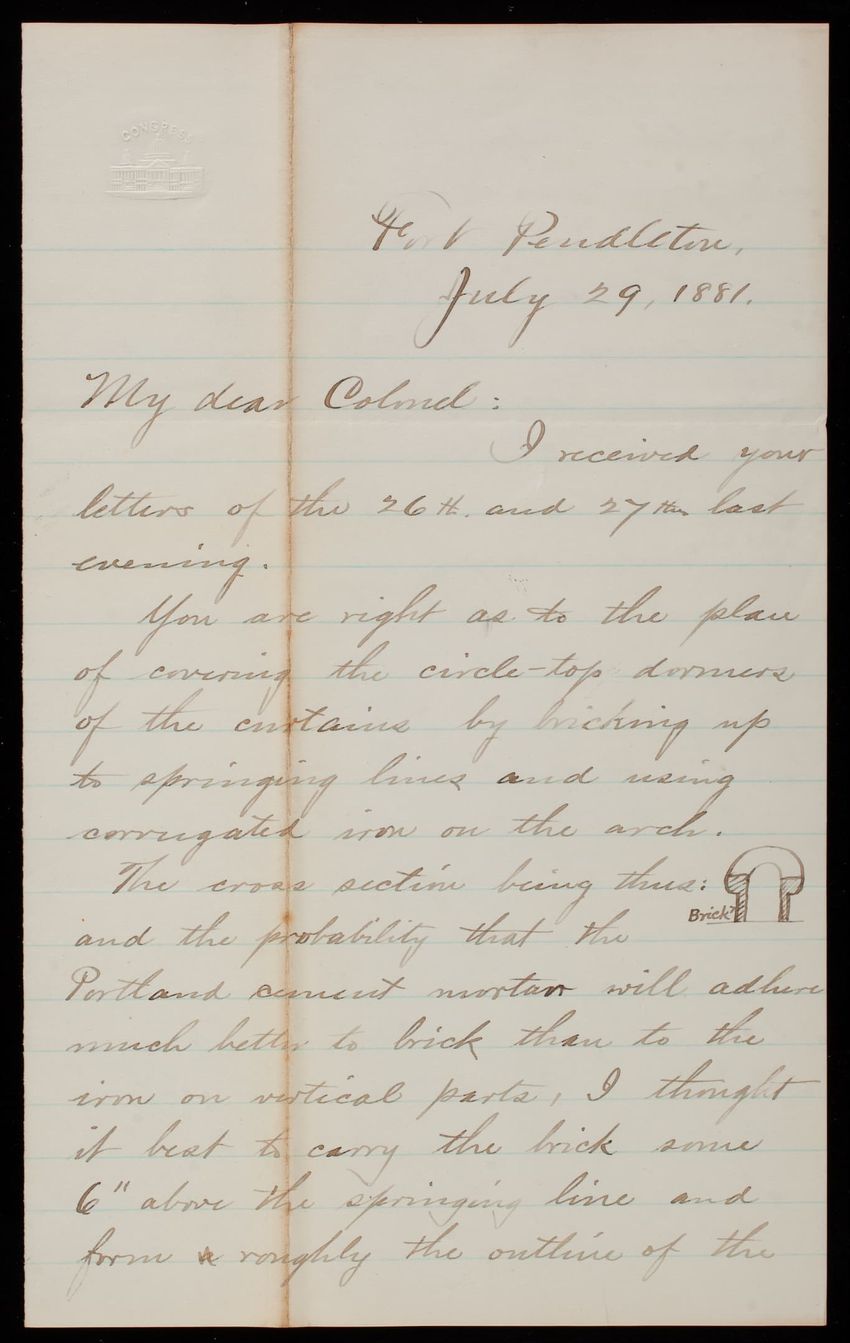 CONGRESS
Fort Pendleton,
July 29, 1881.
My dear Colonel:
I received your
letters of the 26th. and 27th last
evening.
You are right as to the plan
of covering the circle-top dormers
of the curtains by bricking up
to springing lines and using
corrugated iron on the arch.
The cross section being thus:
Brick?
and the probability that the
Portland cement mortar will adhere
much better to brick than to the
iron on vertical parts, I thought
it best to carry the brick some
6" above the springing line and
form roughly the outline of the